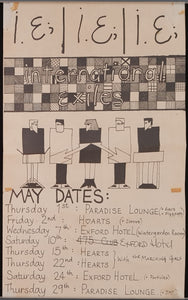 I.E; I.E; I.E;
international
exiles
MAY DATES:
Thursday 1st : PARADISE LOUNGE
Friday 2nd : HEARTS
Wednesday 7th : EXFORD HOTEL
Saturday 10th : EXFORD Hotel
Thursday 15th : HEARTS
Thursday 22nd : HEARTS
Saturday 24th : EXFORD HOTEL
Thursday 29th : PARADISE LOUNGE